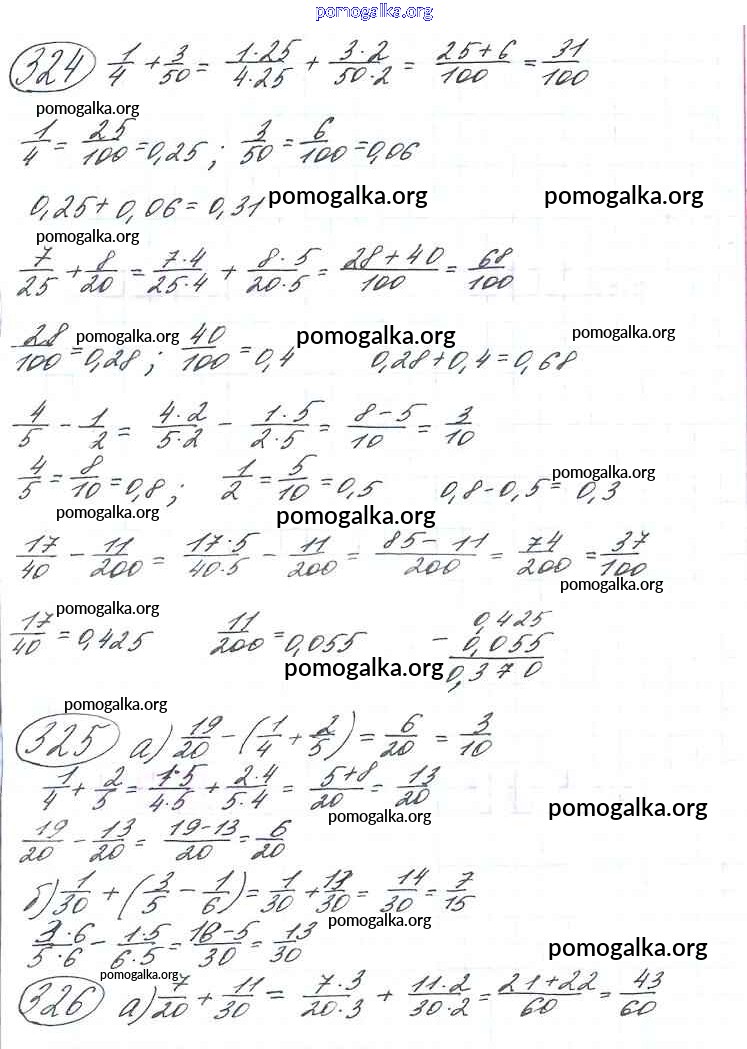 pomogalka.org
324 1/4 + 3/50 = 1·25/4·25 + 3·2/50·2 = 25+6/100 = 31/100
pomogalka.org
1/4 = 25/100 = 0,25 ; 3/50 = 6/100 = 0,06
0,25 + 0,06 = 0,31 pomogalka.org pomogalka.org
pomogalka.org
7/25 + 8/20 = 7·4/25·4 + 8·5/20·5 = 28+40/100 = 68/100
28/100 = 0,28 ; pomogalka.org 40/100 = 0,4 pomogalka.org 0,28 + 0,4 = 0,68 pomogalka.org
4/5 - 1/2 = 4·2/5·2 - 1·5/2·5 = 8-5/10 = 3/10
4/5 = 8/10 = 0,8 ; 1/2 = 5/10 = 0,5 0,8 - 0,5 = 0,3 pomogalka.org
pomogalka.org pomogalka.org
17/40 - 11/200 = 17·5/40·5 - 11/200 = 85-11/200 = 74/200 = 37/100
pomogalka.org
pomogalka.org
17/40 = 0,425 11/200 = 0,055 0,425
- 0,055
pomogalka.org 0,370
pomogalka.org
325 а) 19/20 - (1/4 + 2/5) = 6/20 = 3/10
1/4 + 2/5 = 1·5/4·5 + 2·4/5·4 = 5+8/20 = 13/20
pomogalka.org pomogalka.org
19/20 - 13/20 = 19-13/20 = 6/20
б) 1/30 + (3/5 - 1/6) = 1/30 + 13/30 = 14/30 = 7/15
pomogalka.org
3·6/5·6 - 1·5/6·5 = 18-5/30 = 13/30
pomogalka.org pomogalka.org
326 а) 7/20 + 11/30 = 7·3/20·3 + 11·2/30·2 = 21+22/60 = 43/60